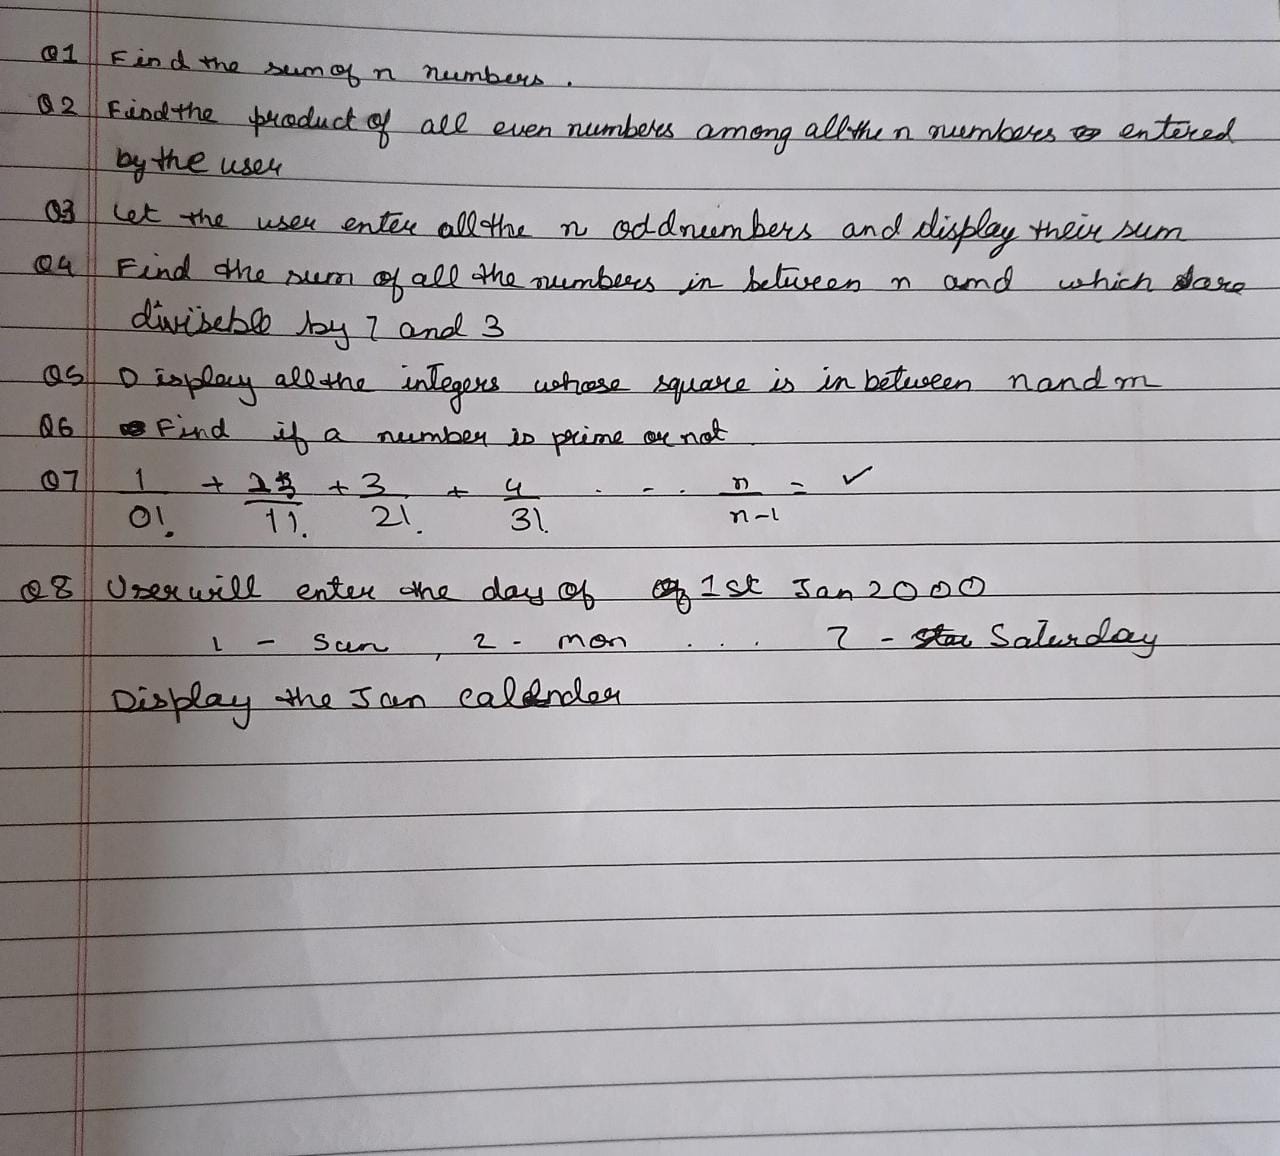 Q1 Find the sum of n numbers.
Q2 Find the product of all even numbers among all the n numbers entered
by the user
Q3 Let the user enter all the n odd numbers and display their sum
Q4 Find the sum of all the numbers in between n and which are
diviseble by 7 and 3
Q5 Display all the integers whose square is in between n and m
Q6 Find if a number is prime or not
Q7 1 + 2 + 3 + 4 . - . n = ✓
0! 1! 2! 3! n-1
Q8 User will enter the day of 1st Jan 2000
1 - Sun, 2 - mon ... 7 - Saturday
Display the Jan calender